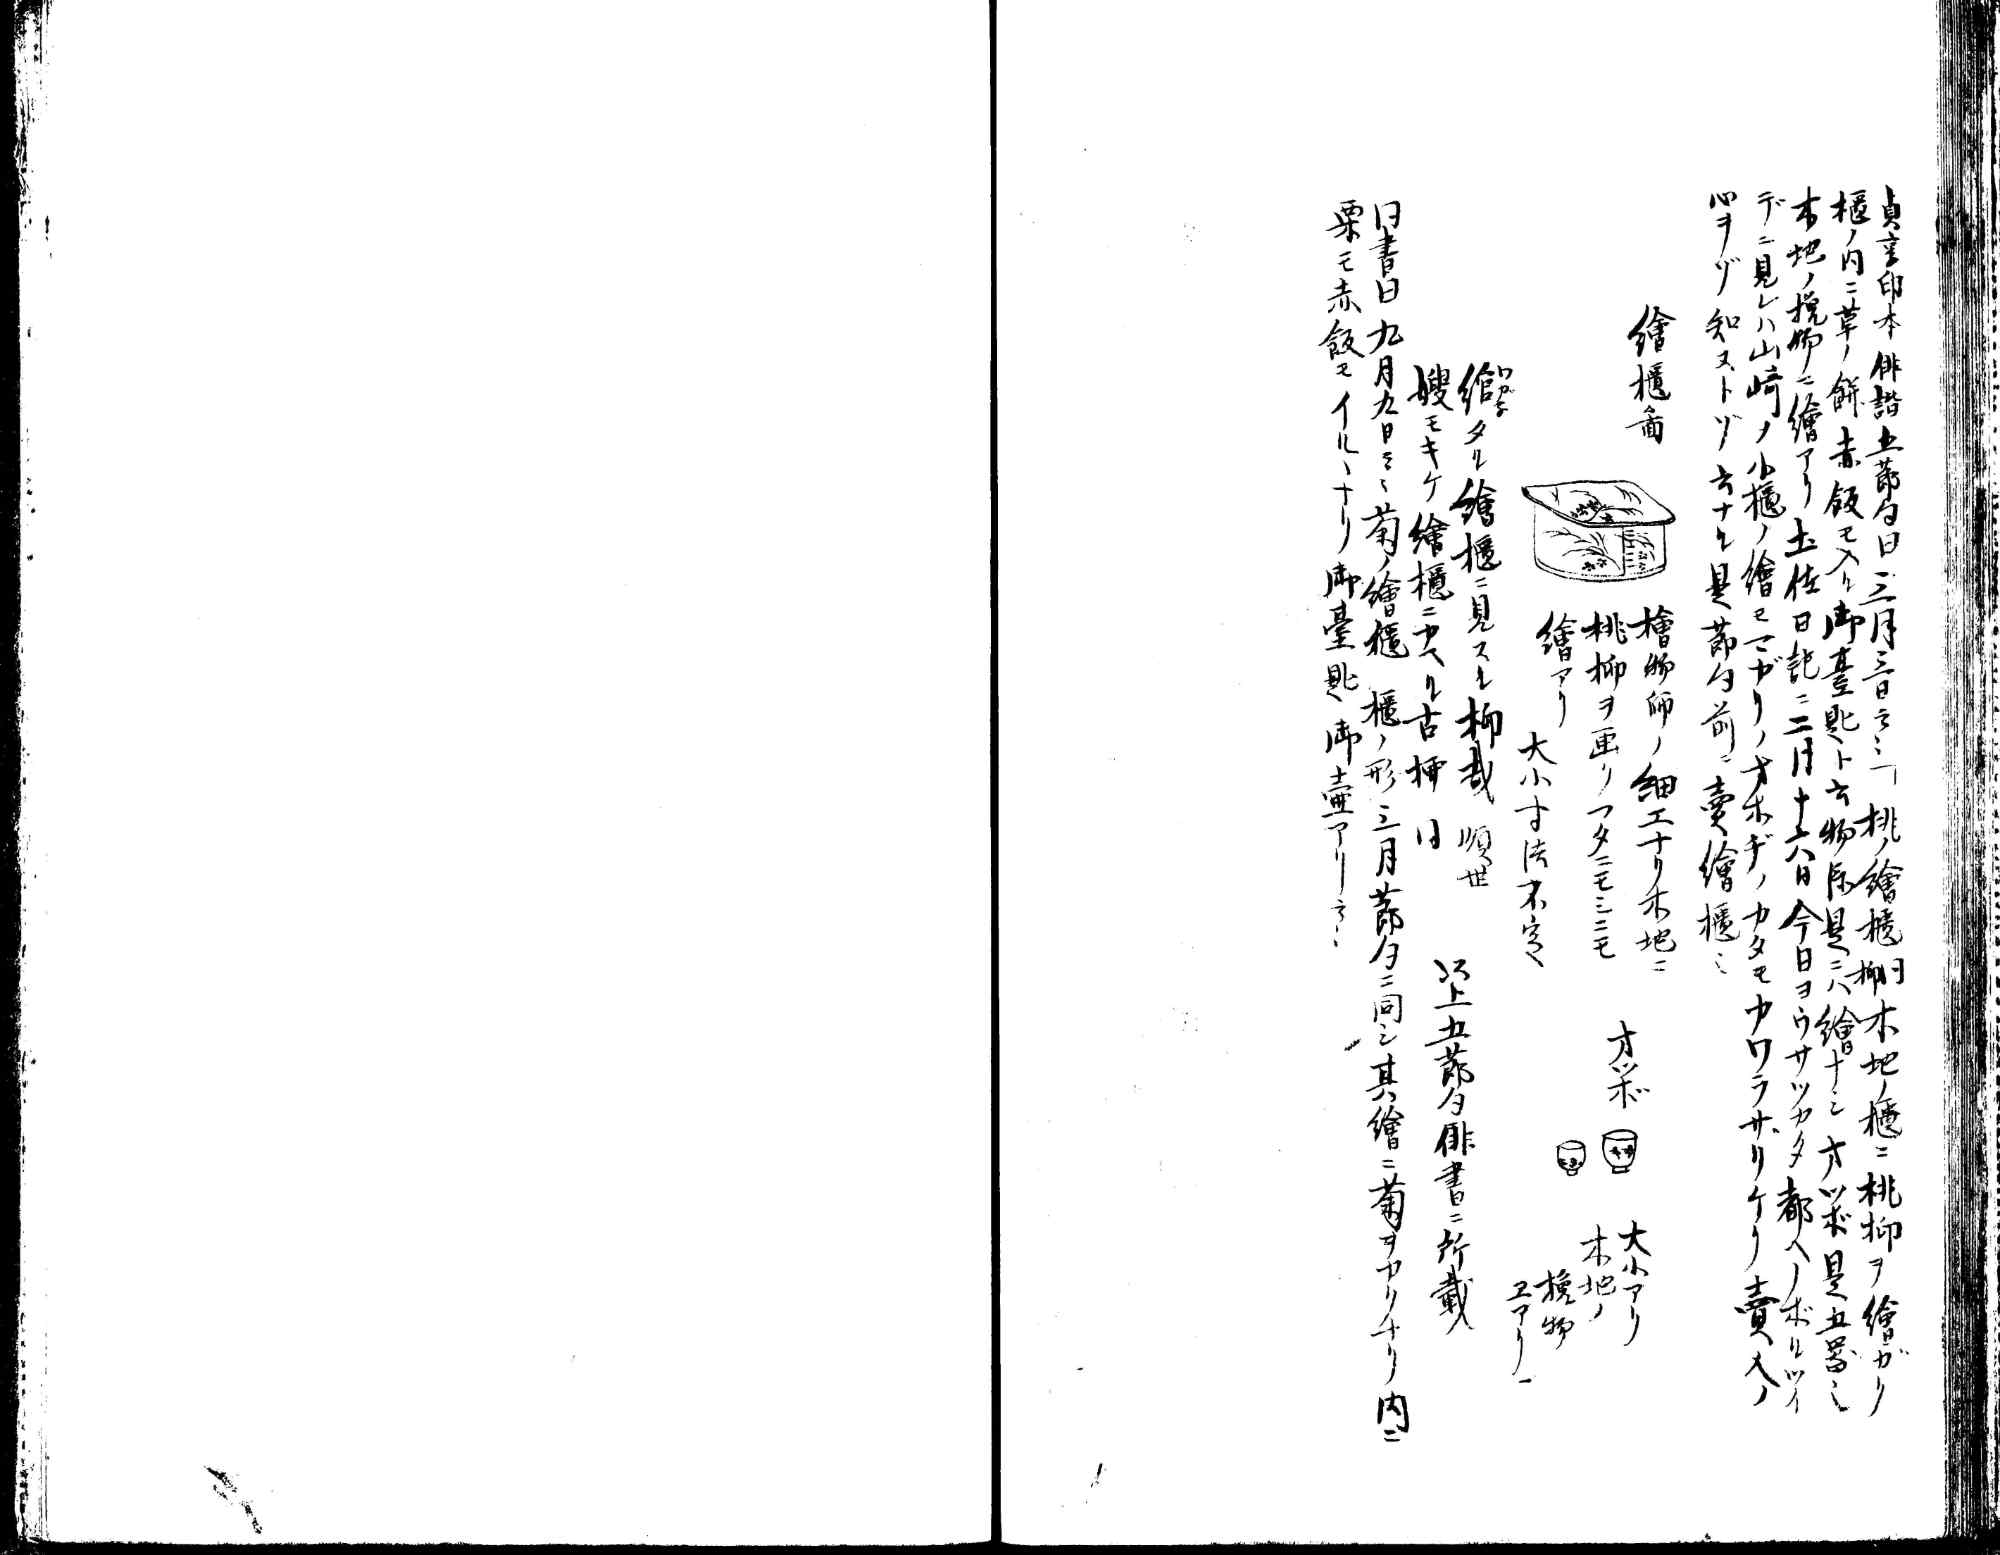 貞享印本俳諧五節句曰三月三日云々桃ノ繪櫃同柳木地ノ櫃ニ桃柳ヲ繪ガリ
櫃ノ内ニ草ノ餅赤飯モ入ル御臺匙ト云物是ニハ繪ナシオツボ是五器也
木地ノ挽物ニ繪アリ土佐日記ニ二月十六日今日ヨウサツカタ都ヘノボルツイ
デニ見レハ山崎ノ小櫃ノ繪モマガリノオホヂノカタモカワラザリケリ賣人ノ
心ヲゾ知ヌトゾ云ナル是節句前ニ賣繪櫃也
繪櫃ノ圖
檜物師ノ細工ナリ木地ニ
桃柳ヲ画リフタニモミニモ
繪アリ
大小寸法不定
オツボ
大小アリ
木地ノ
挽物
ヱアリ
綰タル繪櫃ニ見スル柳哉 順世
ワガネ
嫂モキケ繪櫃ニカヘル古柳 同
以上五節句俳書ニ所載
同書曰九月九日云々菊ノ繪櫃 櫃ノ形三月節句ニ同シ其繪ニ菊ヲカクナリ内ニ
栗モ赤飯モイルヽナリ御臺匙御壷アリ云々